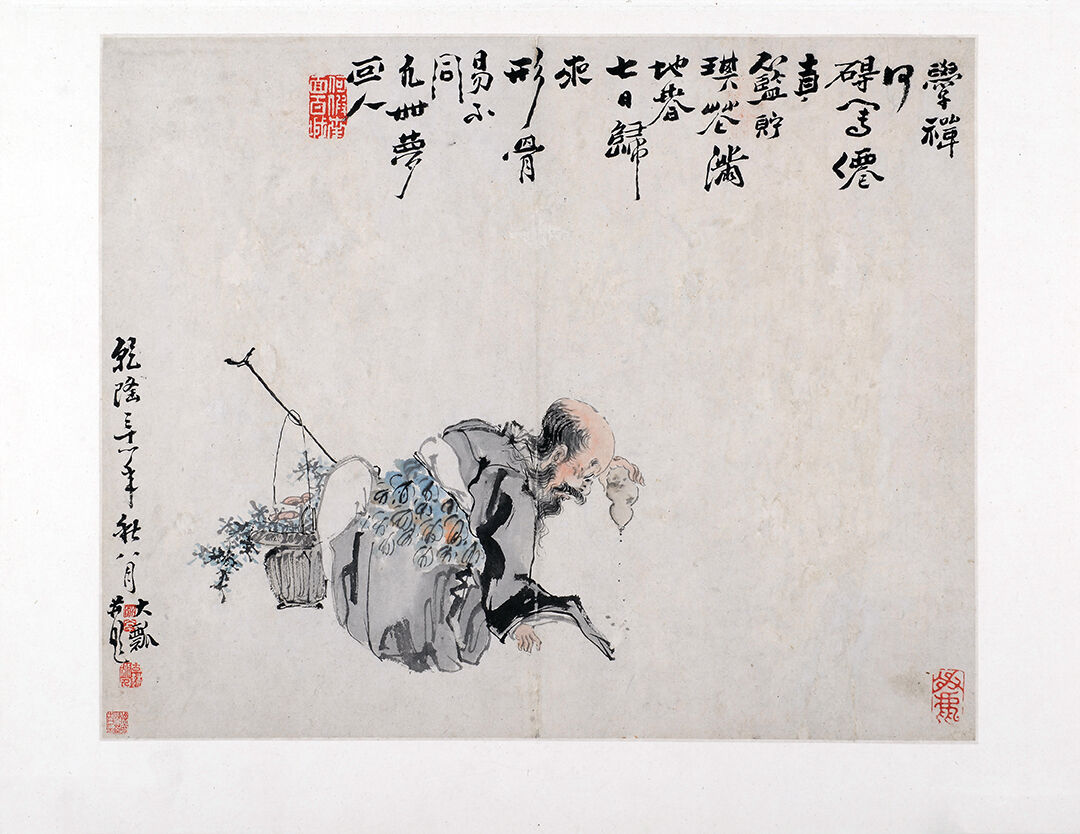 學禪
何
碍寫僊
真
籃貯
琪花滿
地春
七日歸
來
形骨
易不
同
凡世夢
回人
乾隆三十年秋八月
大瓢